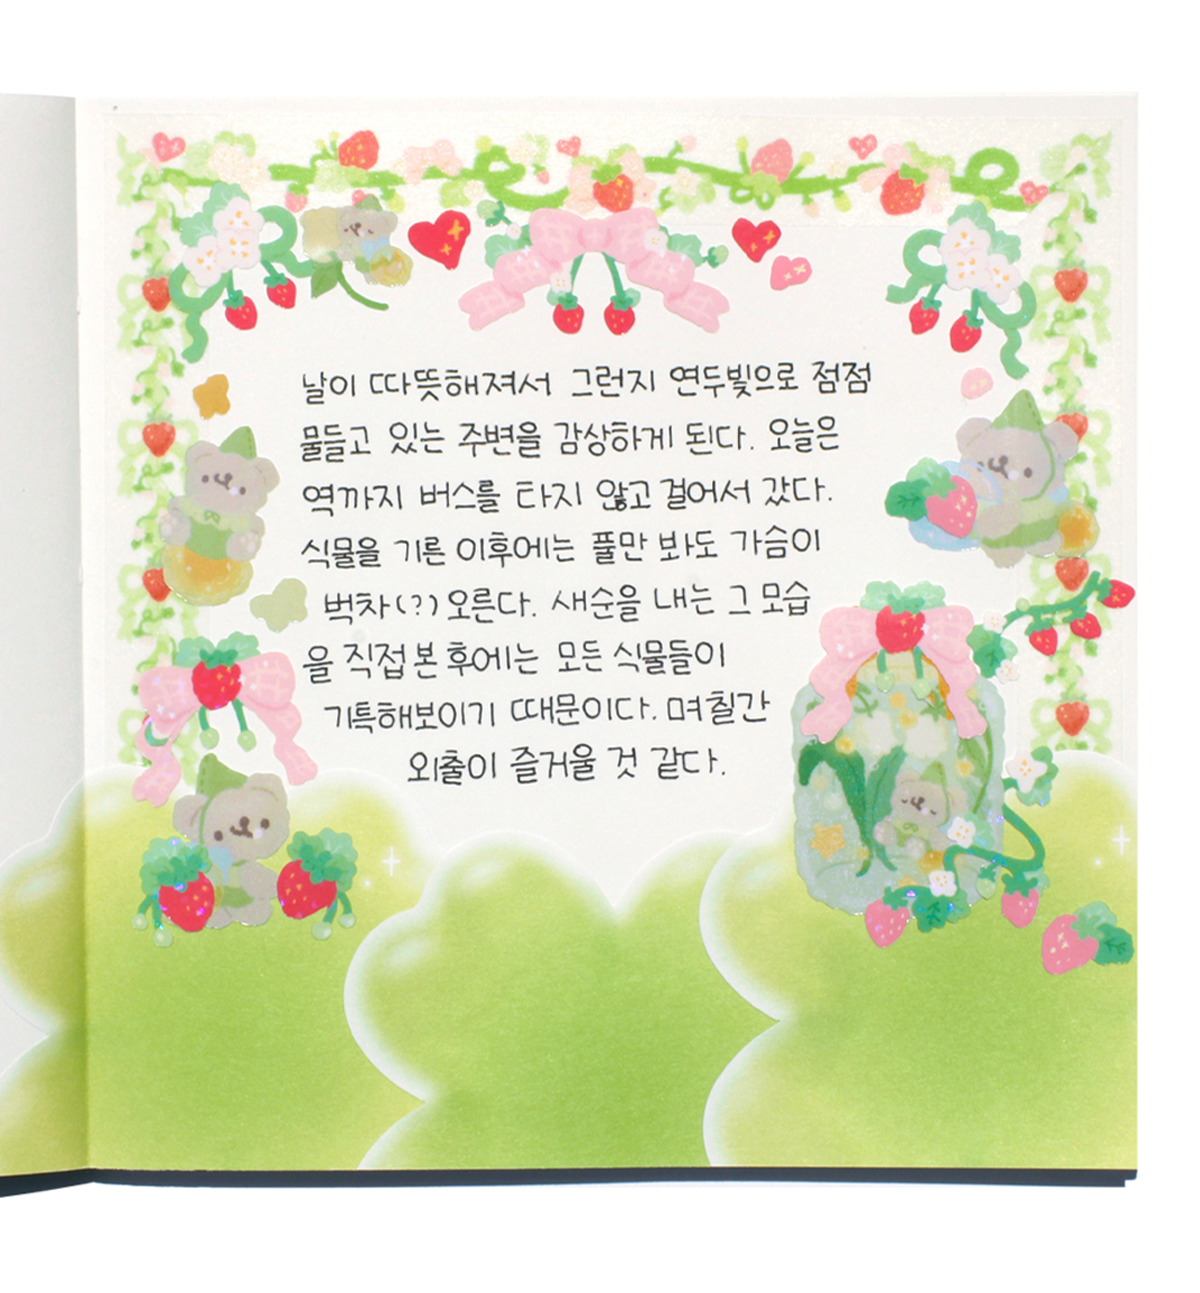 날이 따뜻해져서 그런지 연두빛으로 점점
물들고 있는 주변을 감상하게 된다. 오늘은
역까지 버스를 타지 않고 걸어서 갔다.
식물을 기른 이후에는 풀만 봐도 가슴이
벅차(?)오른다. 새순을 내는 그 모습
을 직접 본 후에는 모든 식물들이
기특해보이기 때문이다. 며칠간
외출이 즐거울 것 같다.